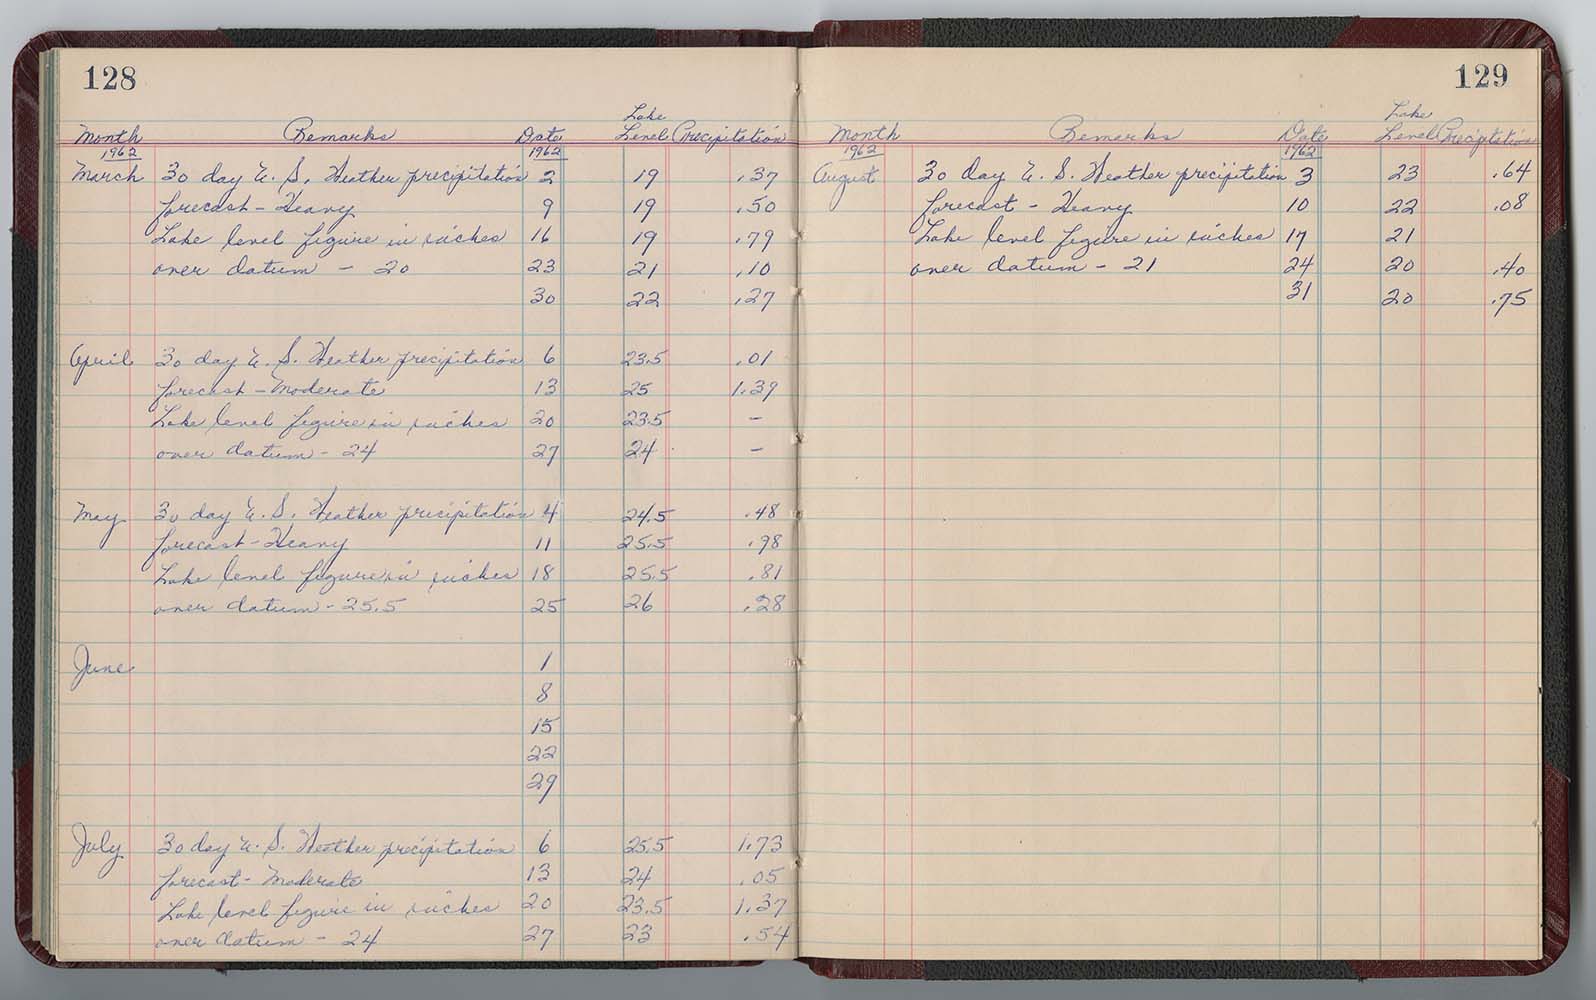 128
Lake
Month Remarks Date Level Precipitation
1962 1962
March 30 day U. S. Weather precipitation 2 19 .37
forecast - Heavy 9 19 .50
Lake level figure in inches 16 19 .79
over datum - 20 23 21 .10
30 22 .27
April 30 day U. S. Weather precipitation 6 23.5 .01
forecast - Moderate 13 25 1.39
Lake level figure in inches 20 23.5 -
over datum - 24 27 24 -
May 30 day U. S. Weather precipitation 4 24.5 .48
forecast - Heavy 11 25.5 .98
Lake level figure in inches 18 25.5 .81
over datum - 25.5 25 26 .28
June 1
8
15
22
29
July 30 day U. S. Weather precipitation 6 25.5 1.73
forecast - Moderate 13 24 .05
Lake level figure in inches 20 23.5 1.37
over datum - 24 27 23 .54
129
Lake
Month Remarks Date Level Precipitation
1962 1962
August 30 day U. S. Weather precipitation 3 23 .64
forecast - Heavy 10 22 .08
Lake level figure in inches 17 21
over datum - 21 24 20 .40
31 20 .75